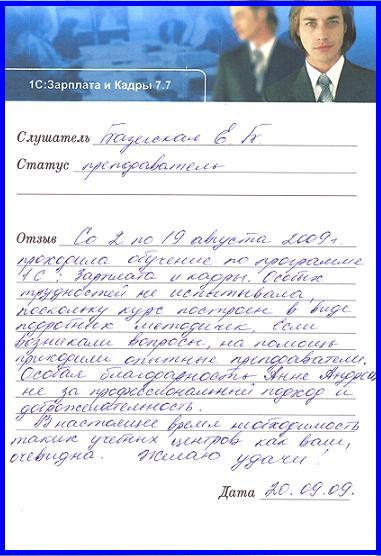 1С:Зарплата и Кадры 7.7
Слушатель Базейская Е. Б.
Статус преподаватель
Отзыв Со 2 по 19 августа 2009 г.
проходила обучение по программе
1С - Зарплата и кадры. Особых
трудностей не испытывала
поскольку курс построен в виде
подробных методичек. Если
возникали вопросы, на помощь
приходили опытные преподаватели.
Особая благодарность Анне Андреев
не за профессиональный подход и
доброжелательность.
В настоящее время необходимость
таких учебных центров как ваш,
очевидна. Желаю удачи!
Дата 20.09.09.